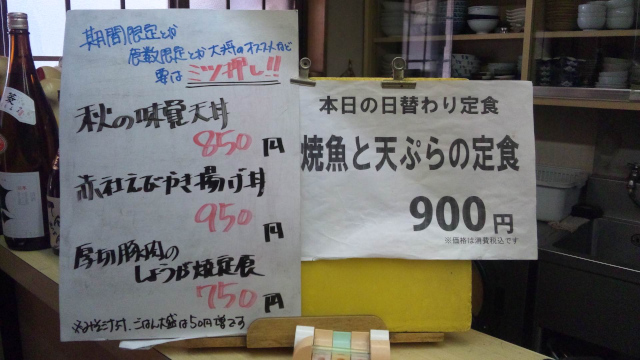 期間限定とか
食数限定とか大将のオススメなど
要は ミツ押し!!
秋の味覚天丼
850円
赤社えびかき揚げ丼
950円
厚切豚肉の
しょうが焼定食
750円
ごはん大盛は50円増です
本日の日替わり定食
焼魚と天ぷらの定食
900円
※価格は消費税込です